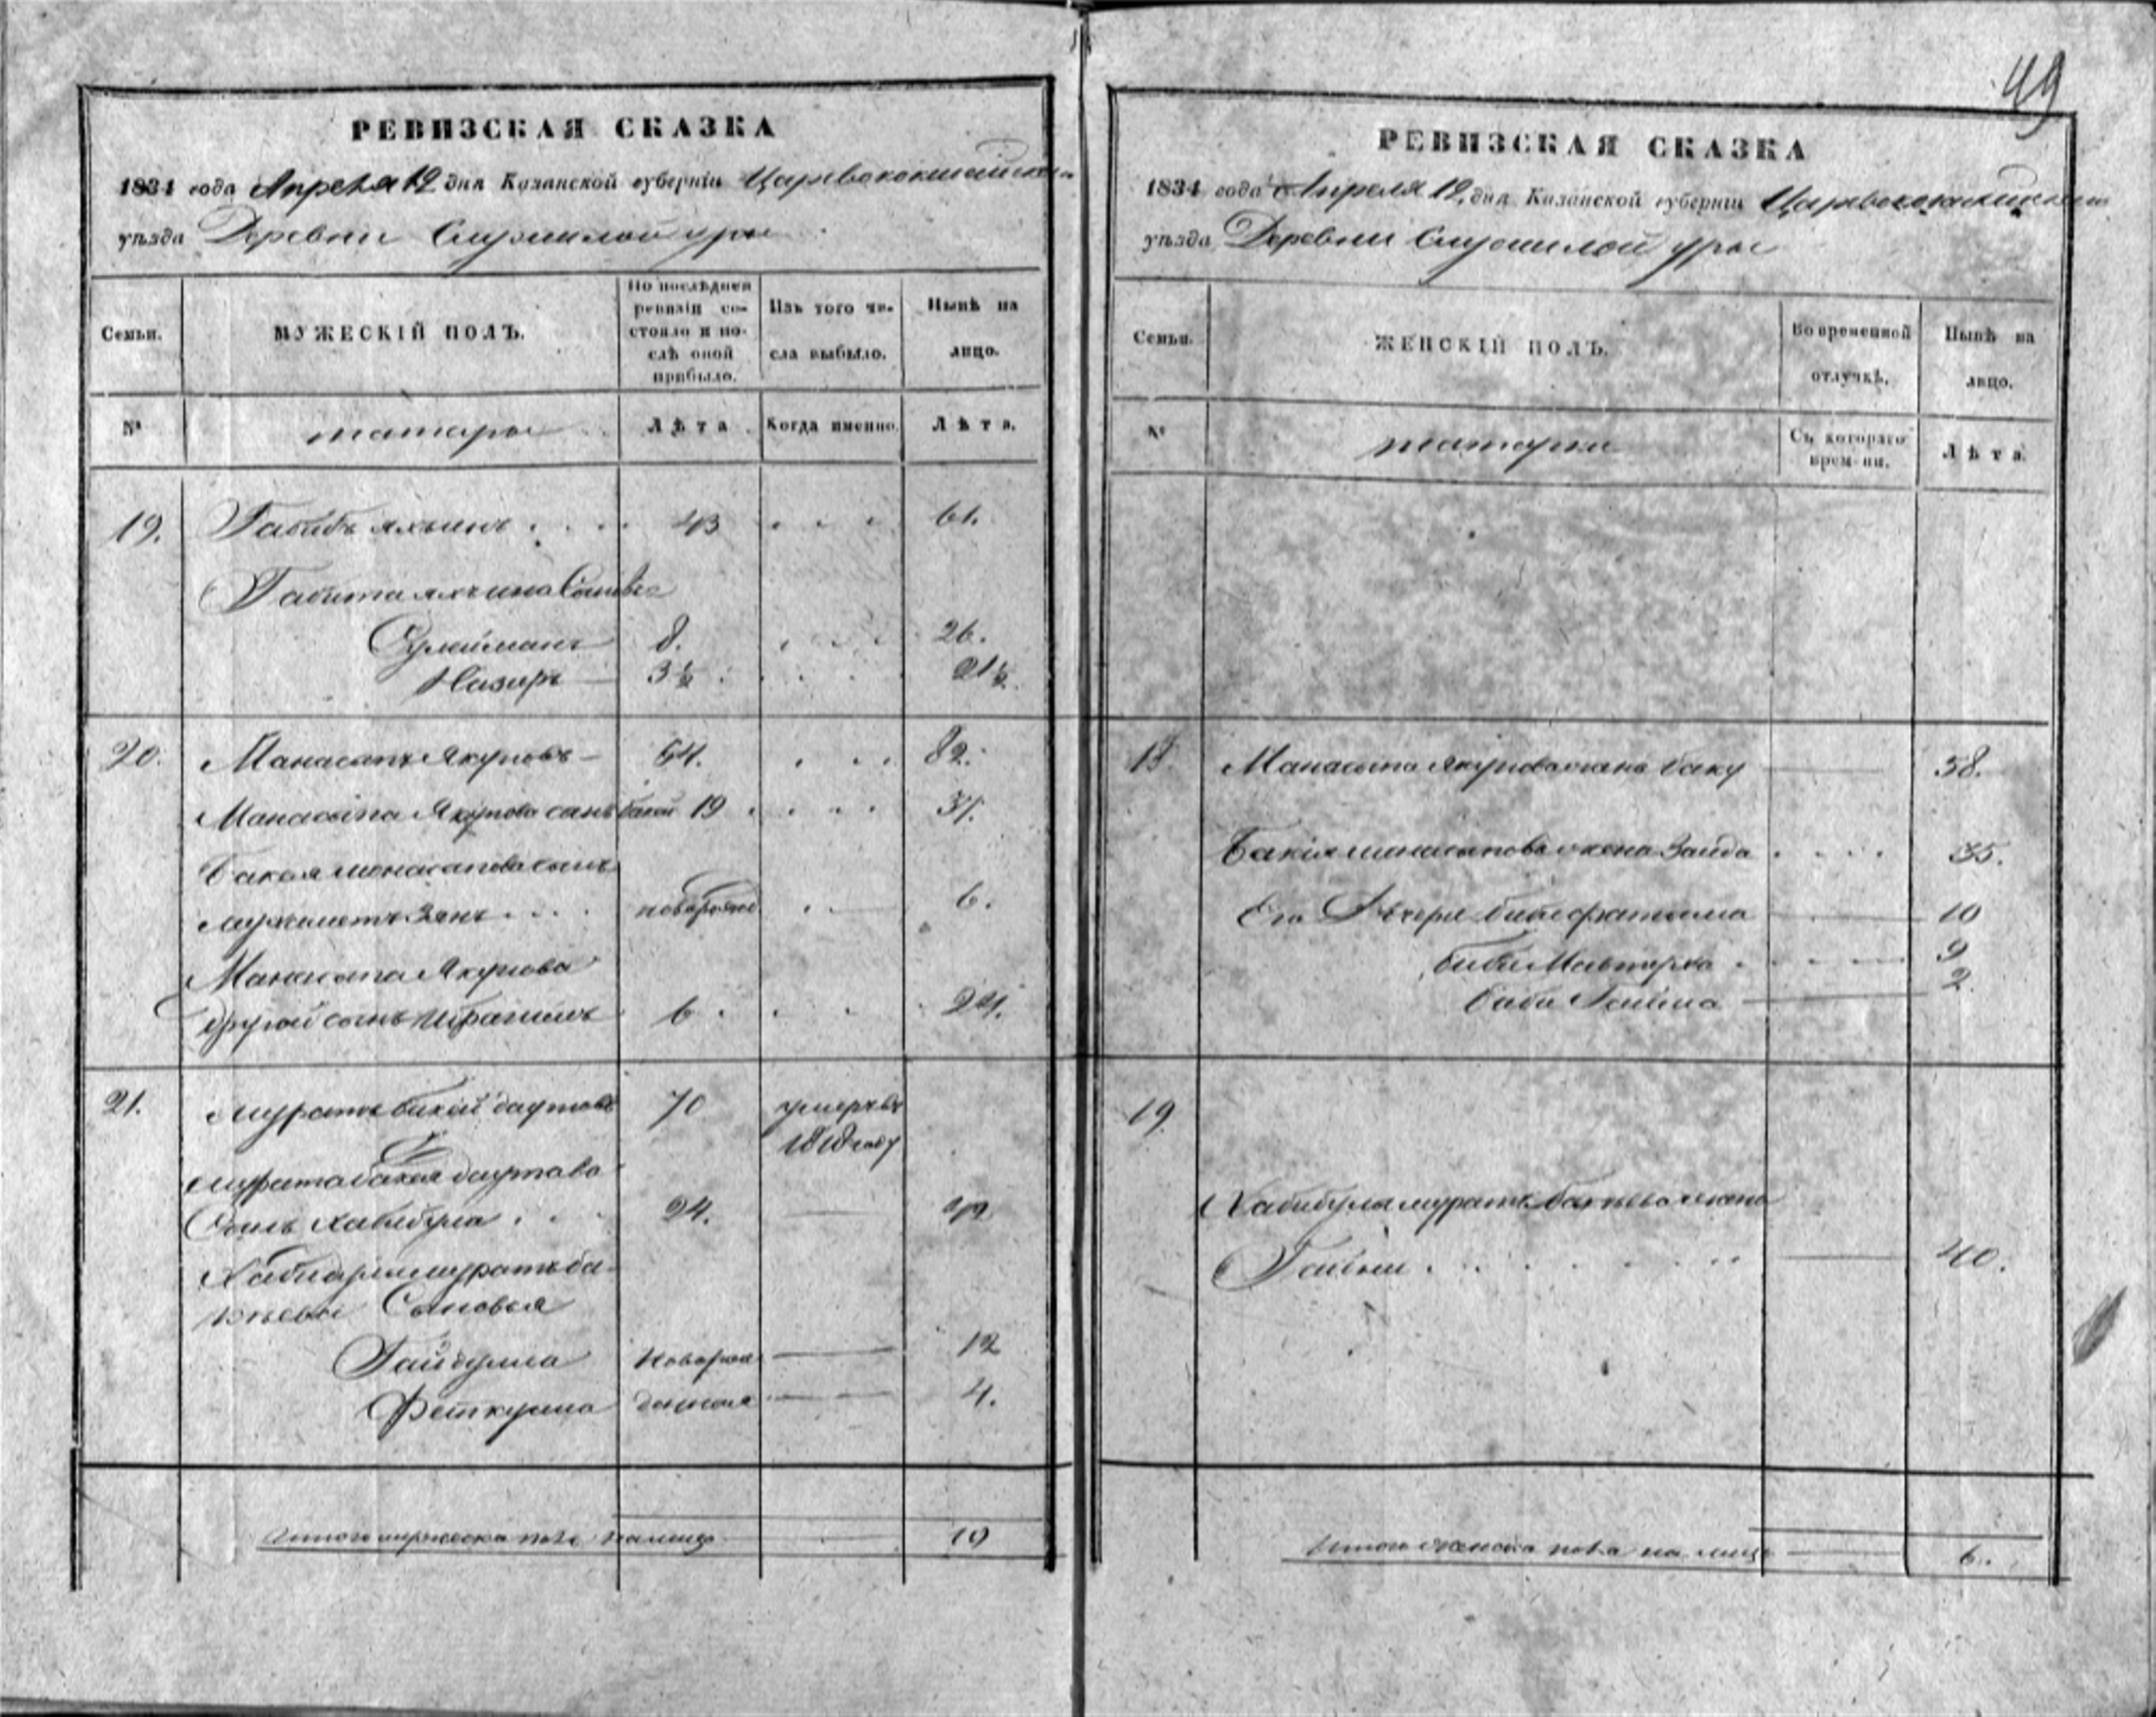 49
РЕВИЗСКАЯ СКАЗКА
1834 года Апреля 12 дня Казанской губерніи Царевококшайскаго
уѣзда Деревни уры
Семьи.
МУЖЕСКІЙ ПОЛЪ.
По послѣдней ревизіи состояло и послѣ оной прибыло.
Изъ того числа выбыло.
Нынѣ на лицо.
№
татары
Лѣта
Когда именно.
Лѣта.
19. Габитъ яхьинъ . . . . 43 . . . 61.
Габита яхьина Сыновья
Сулейманъ 8. . . . 26.
Назиръ 3½ . . . . 21½.
20. Манасыпъ Якуповъ 64. . . . 82.
Манасыпа Якупова сынъ бакей 19 . . . . 37.
Бакея манасыпова сынъ
мухаметъ Зянъ . . . новорожд . 6.
Манасыпа Якупова
другой сынъ Ибрагимъ 6 . . . 24.
21. муратъ бакей даутовъ 70 умеръ въ
1818 году
мурата бакея даутова
Сынъ Хабибула . . . 24. 42
Хабибулы муратъ ба-
кѣева Сыновья
Гайдулла Новорож 12
Феткулла денные 4.
Итого мужеска пола налицо 10
РЕВИЗСКАЯ СКАЗКА
1834 года Апреля 12, дня Казанской губерніи Царевококшайскаго
уѣзда Деревни уры
Семьи.
ЖЕНСКІЙ ПОЛЪ.
Во временной отлучкѣ.
Нынѣ на лицо.
№
татарки
Съ котораго времени.
Лѣта.
18. Манасыпа Якупова жена баку 58.
Бакія манасыпова жена Заида . . . . 35.
Его Дочери бибифатыма 10
биби 9
биби Гайша 2.
19
Хабибулы муратъ бакѣева жена
40.
Итого женска пола на лицо 6.